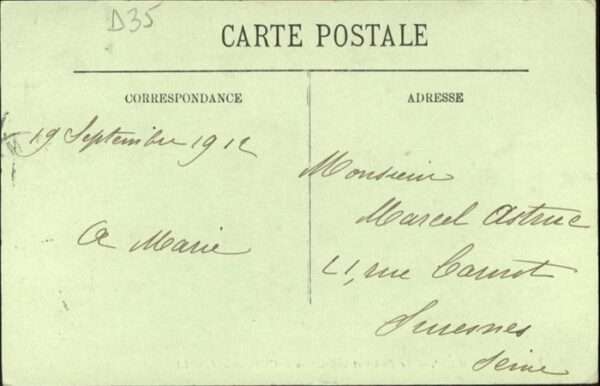 D35
CARTE POSTALE
CORRESPONDANCE
ADRESSE
19 Septembre 1912
A Marie
Monsieur
Marcel Astruc
21, rue Carnot
Suresnes
Seine